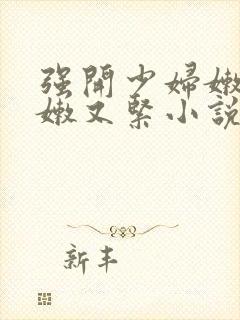 强開少婦嫩
嫩又緊小說
新丰